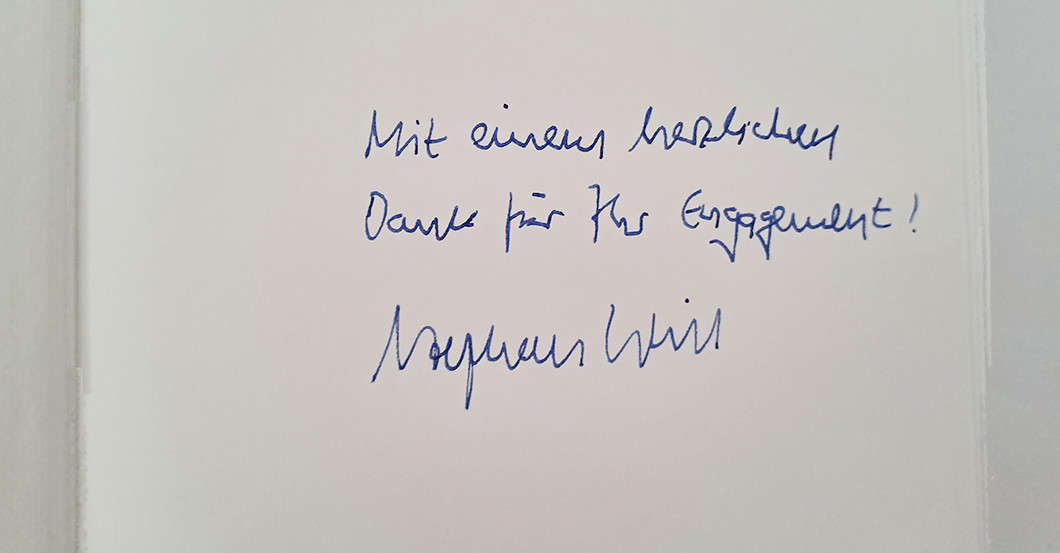 Mit einem herzlichen
Dank für Ihr Engagement!
Stephan Weil